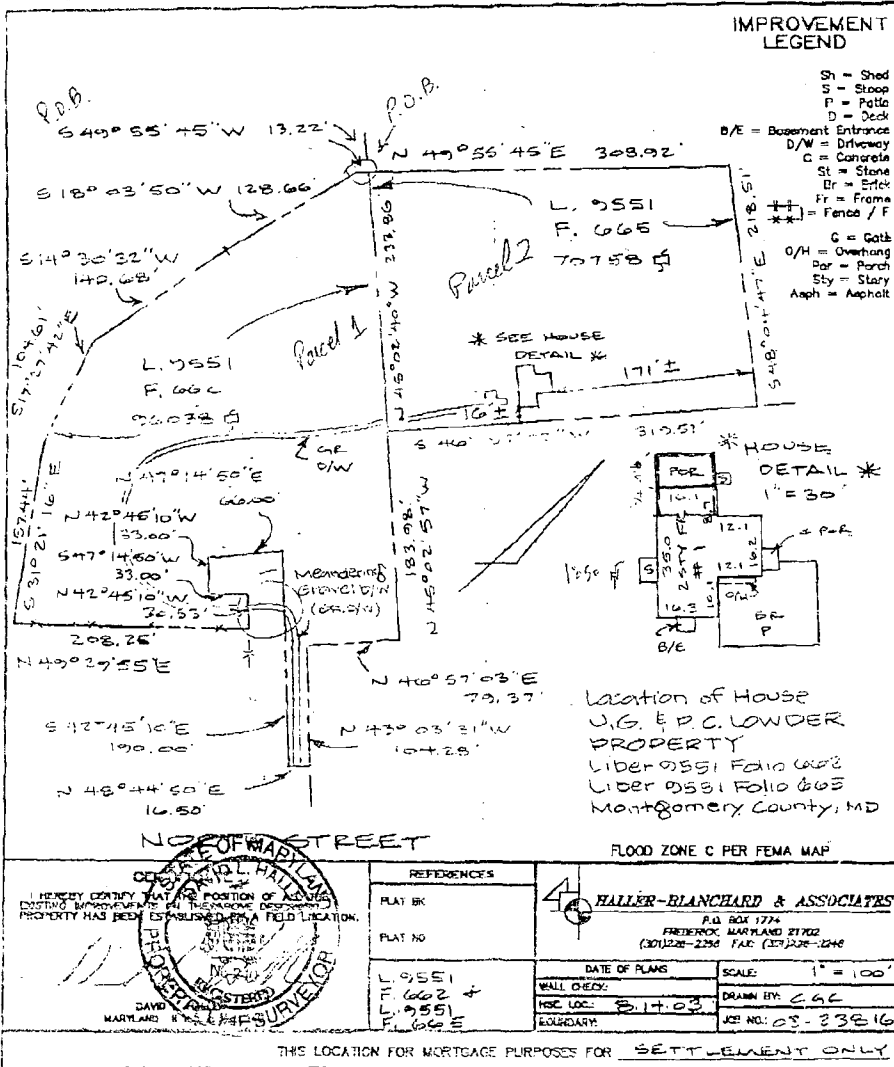 IMPROVEMENT
LEGEND
Sh = Shed
S = Stoop
P = Patio
D = Deck
B/E = Basement Entrance
D/W = Driveway
C = Concrete
St = Stone
Br = Brick
Fr = Frame
= Fence / F
G = Gate
O/H = Overhang
Por = Porch
Sty = Story
Asph = Asphalt
P.O.B.
P.O.B.
S 49° 55' 45" W 13.22'
N 49° 55' 45" E 308.92'
S 18° 03' 50" W 128.66'
S 14° 30' 32" W
S 17° 27' 42" E 104.61'
S 31° 21' 16" E 157.44'
N 45° 02' 40" W 233.86
S 48° 04' 47" E 218.51'
L. 9551
F. 665
70758
Parcel 2
Parcel 1
L. 9551
F. 662
96038
* SEE HOUSE
DETAIL *
171' ±
16' ±
GR
D/W
S 46° W 319.57'
N 47° 14' 50" E
66.00'
N 42° 45' 10" W
33.00'
S 47° 14' 50" W
33.00'
N 42° 45' 10" W
30.53'
Meandering
Gravel D/W
(GR. D/W)
N 45° 02' 57" W 183.98'
208.25'
N 49° 29' 55" E
N 46° 57' 03" E
79.37'
S 42° 45' 10" E
190.00'
N 43° 03' 31" W
104.28'
N 48° 44' 50" E
16.50'
* HOUSE
DETAIL *
1" = 30'
POR
S
16.1
8.7
12.1
± POR
35.0
2 STY FR
# 1
16.2
12.1
S
16.3
16.1
O/H
BR
P
B/E
Location of House
V.G. & P.C. LOWDER
PROPERTY
Liber 9551 Folio 662
Liber 9551 Folio 665
Montgomery County, MD
STREET
FLOOD ZONE C PER FEMA MAP
I HEREBY CERTIFY THAT THE POSITION OF
EXISTING IMPROVEMENTS ON THE ABOVE DESCRIBED
PROPERTY HAS BEEN ESTABLISHED BY A FIELD LOCATION.
STATE OF MARYLAND
DAVID L. HALLER
REGISTERED
PROPERTY LINE SURVEYOR
DAVID
MARYLAND
REFERENCES
PLAT BK
PLAT NO
L. 9551
F. 662 &
L. 9551
F. 665
HALLER-BLANCHARD & ASSOCIATES
P.O. BOX 1774
FREDERICK, MARYLAND 21702
DATE OF PLANS
WALL CHECK:
HSE. LOC.: 8.14.03
BOUNDARY:
SCALE: 1" = 100'
DRAWN BY: CGC
JOB NO.: 03-23816
THIS LOCATION FOR MORTGAGE PURPOSES FOR SETTLEMENT ONLY